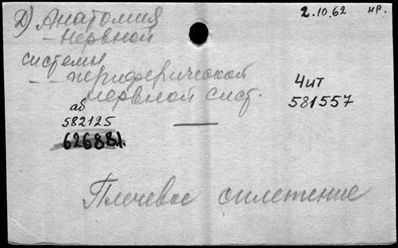 Д) Анатомия
— нервной
системы
— периферической
нервной сист.
2.10.62
нр.
Чит
581557
аб
582125
626881.
Плечевое сплетение